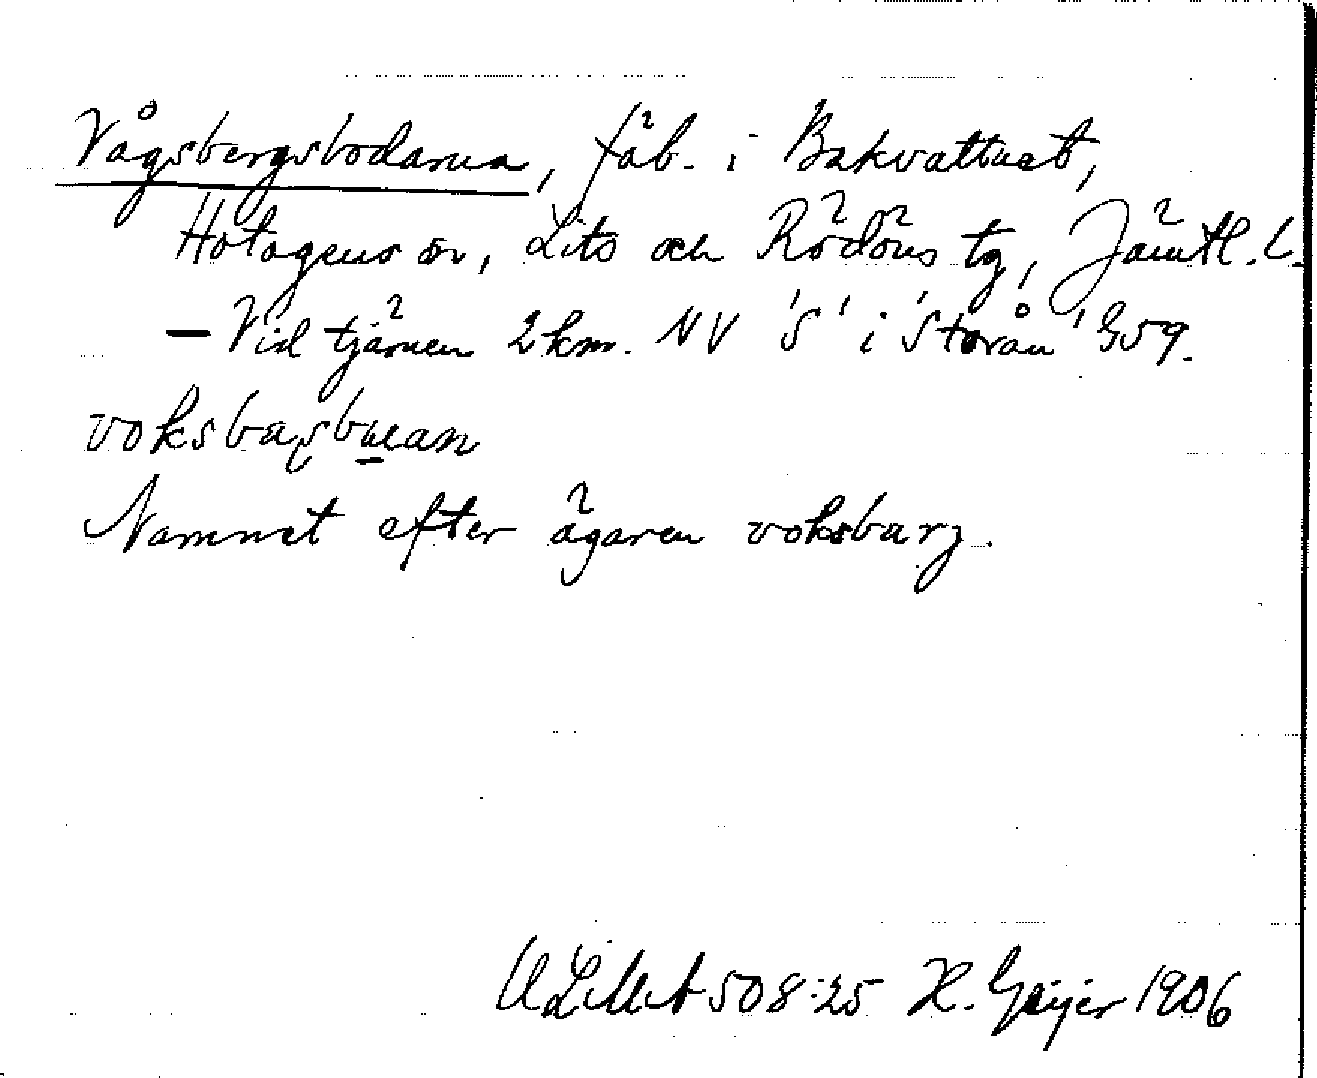 Vågsbergsbodarna, fäb. i Bakvattnet,
Hotagens sn, Lits och Rödöns tg, Jämtl. l.
— Vid tjärnen 2 km. NV 'S' i 'Storån' G59.
voksbaʂbuan
Namnet efter ägaren voksbarj.
ULMA 508:25 H. Geijer 1906